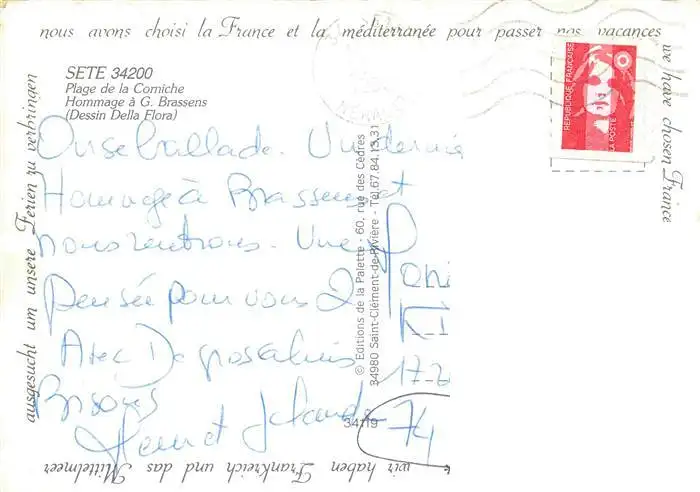 nous avons choisi la France et la méditerranée pour passer nos vacances
SETE 34200
Plage de la Corniche
Hommage à G. Brassens
(Dessin Della Flora)
On se ballade. Un dernier
Homage à Brassens et
nous rentrons. Une
Pensée pour vous 2
Avec De gros calins
Bisous
et
REPUBLIQUE FRANÇAISE
LA POSTE
we have chosen France
© Editions de la Palette - 60, rue des Cèdres
34980 Saint-Clément-de-Rivière - Tel.67.84.13.31
17
34119
74
wir haben Frankreich und das Mittelmeer
ausgesucht um unsere Ferien zu verbringen